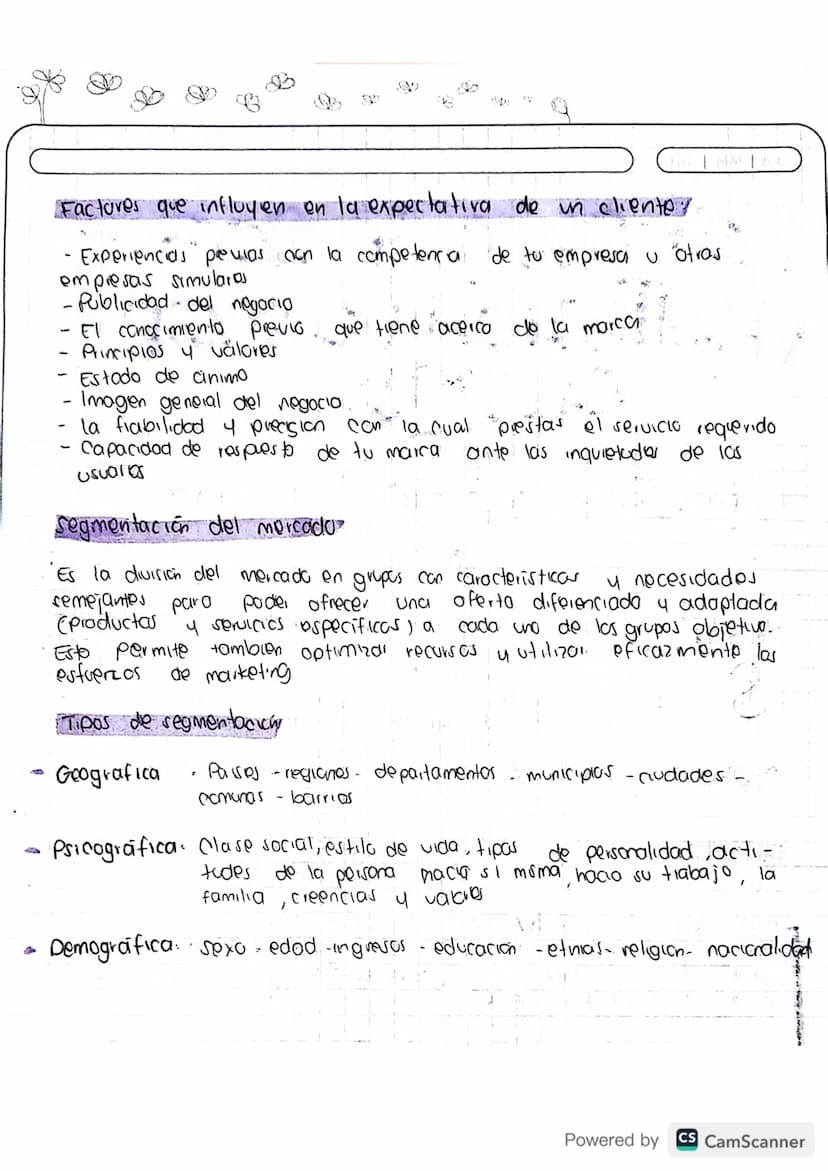 Factores que influyen en la expectativa de un cliente:
- Experiencias previas con la competencia de tu empresa u otras
empresas similares
- Publicidad del negocio
- El conocimiento previo que tiene acerca de la marca
- Principios y valores
- Estado de ánimo
- Imagen general del negocio
- la fiabilidad y precisión con la cual prestas el servicio requerido
- Capacidad de respuesta de tu marca ante las inquietudes de los
usuarios
Segmentación del mercado
Es la división del mercado en grupos con características y necesidades
semejantes para poder ofrecer una oferta diferenciada y adaptada
(productos y servicios específicos) a cada uno de los grupos objetivo.
Esto permite también optimizar recursos y utilizar eficazmente los
esfuerzos de marketing
Tipos de segmentación
- Geografica . Paises - regiones - departamentos - municipios - ciudades -
comunas - barrios
- Psicográfica: Clase social, estilo de vida, tipos de personalidad, acti-
tudes de la persona hacia si misma, hacia su trabajo, la
familia, creencias y valores
- Demográfica: sexo - edad - ingresos - educación - etnias - religion - nacionalidad
Powered by CS CamScanner